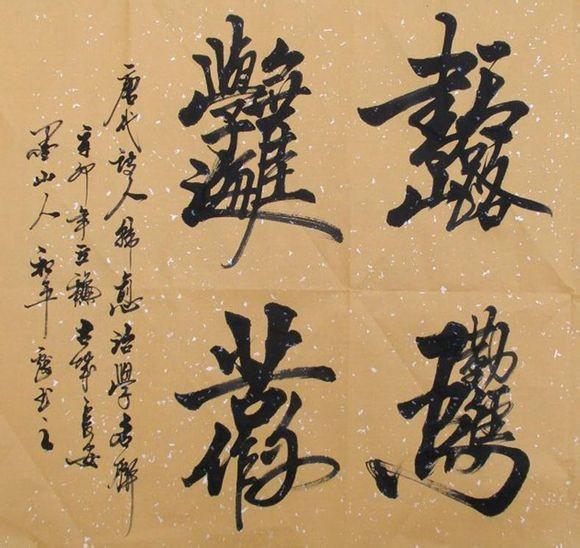 書山有路
勤為徑
學海無涯
苦作舟
唐代詩人韓愈治學名聯
辛卯年 古城長安
墨山人和平書之